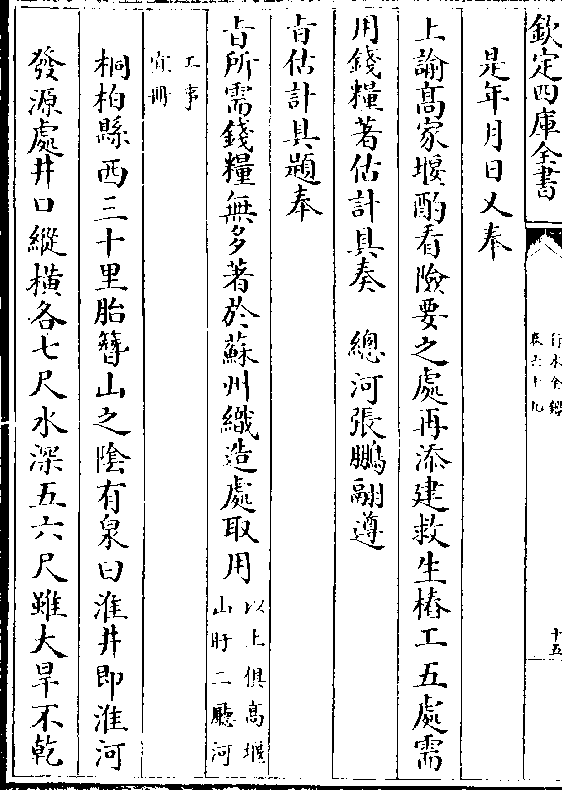 欽定四庫全書
行水金鑑
卷六十九
十五
是年月日又奉
上諭髙家堰酌看險要之處再添建救生樁工五處需
用錢糧著估計具奏 總河張鵬翮遵
㫖估計具題奉
㫖所需錢糧無多著於蘇州織造處取用以上俱髙堰
山盱二廳河
工事
宜冊
桐柏縣西三十里胎簪山之隂有泉曰淮井即淮河
發源處井口縱横各七尺水深五六尺雖大旱不乾